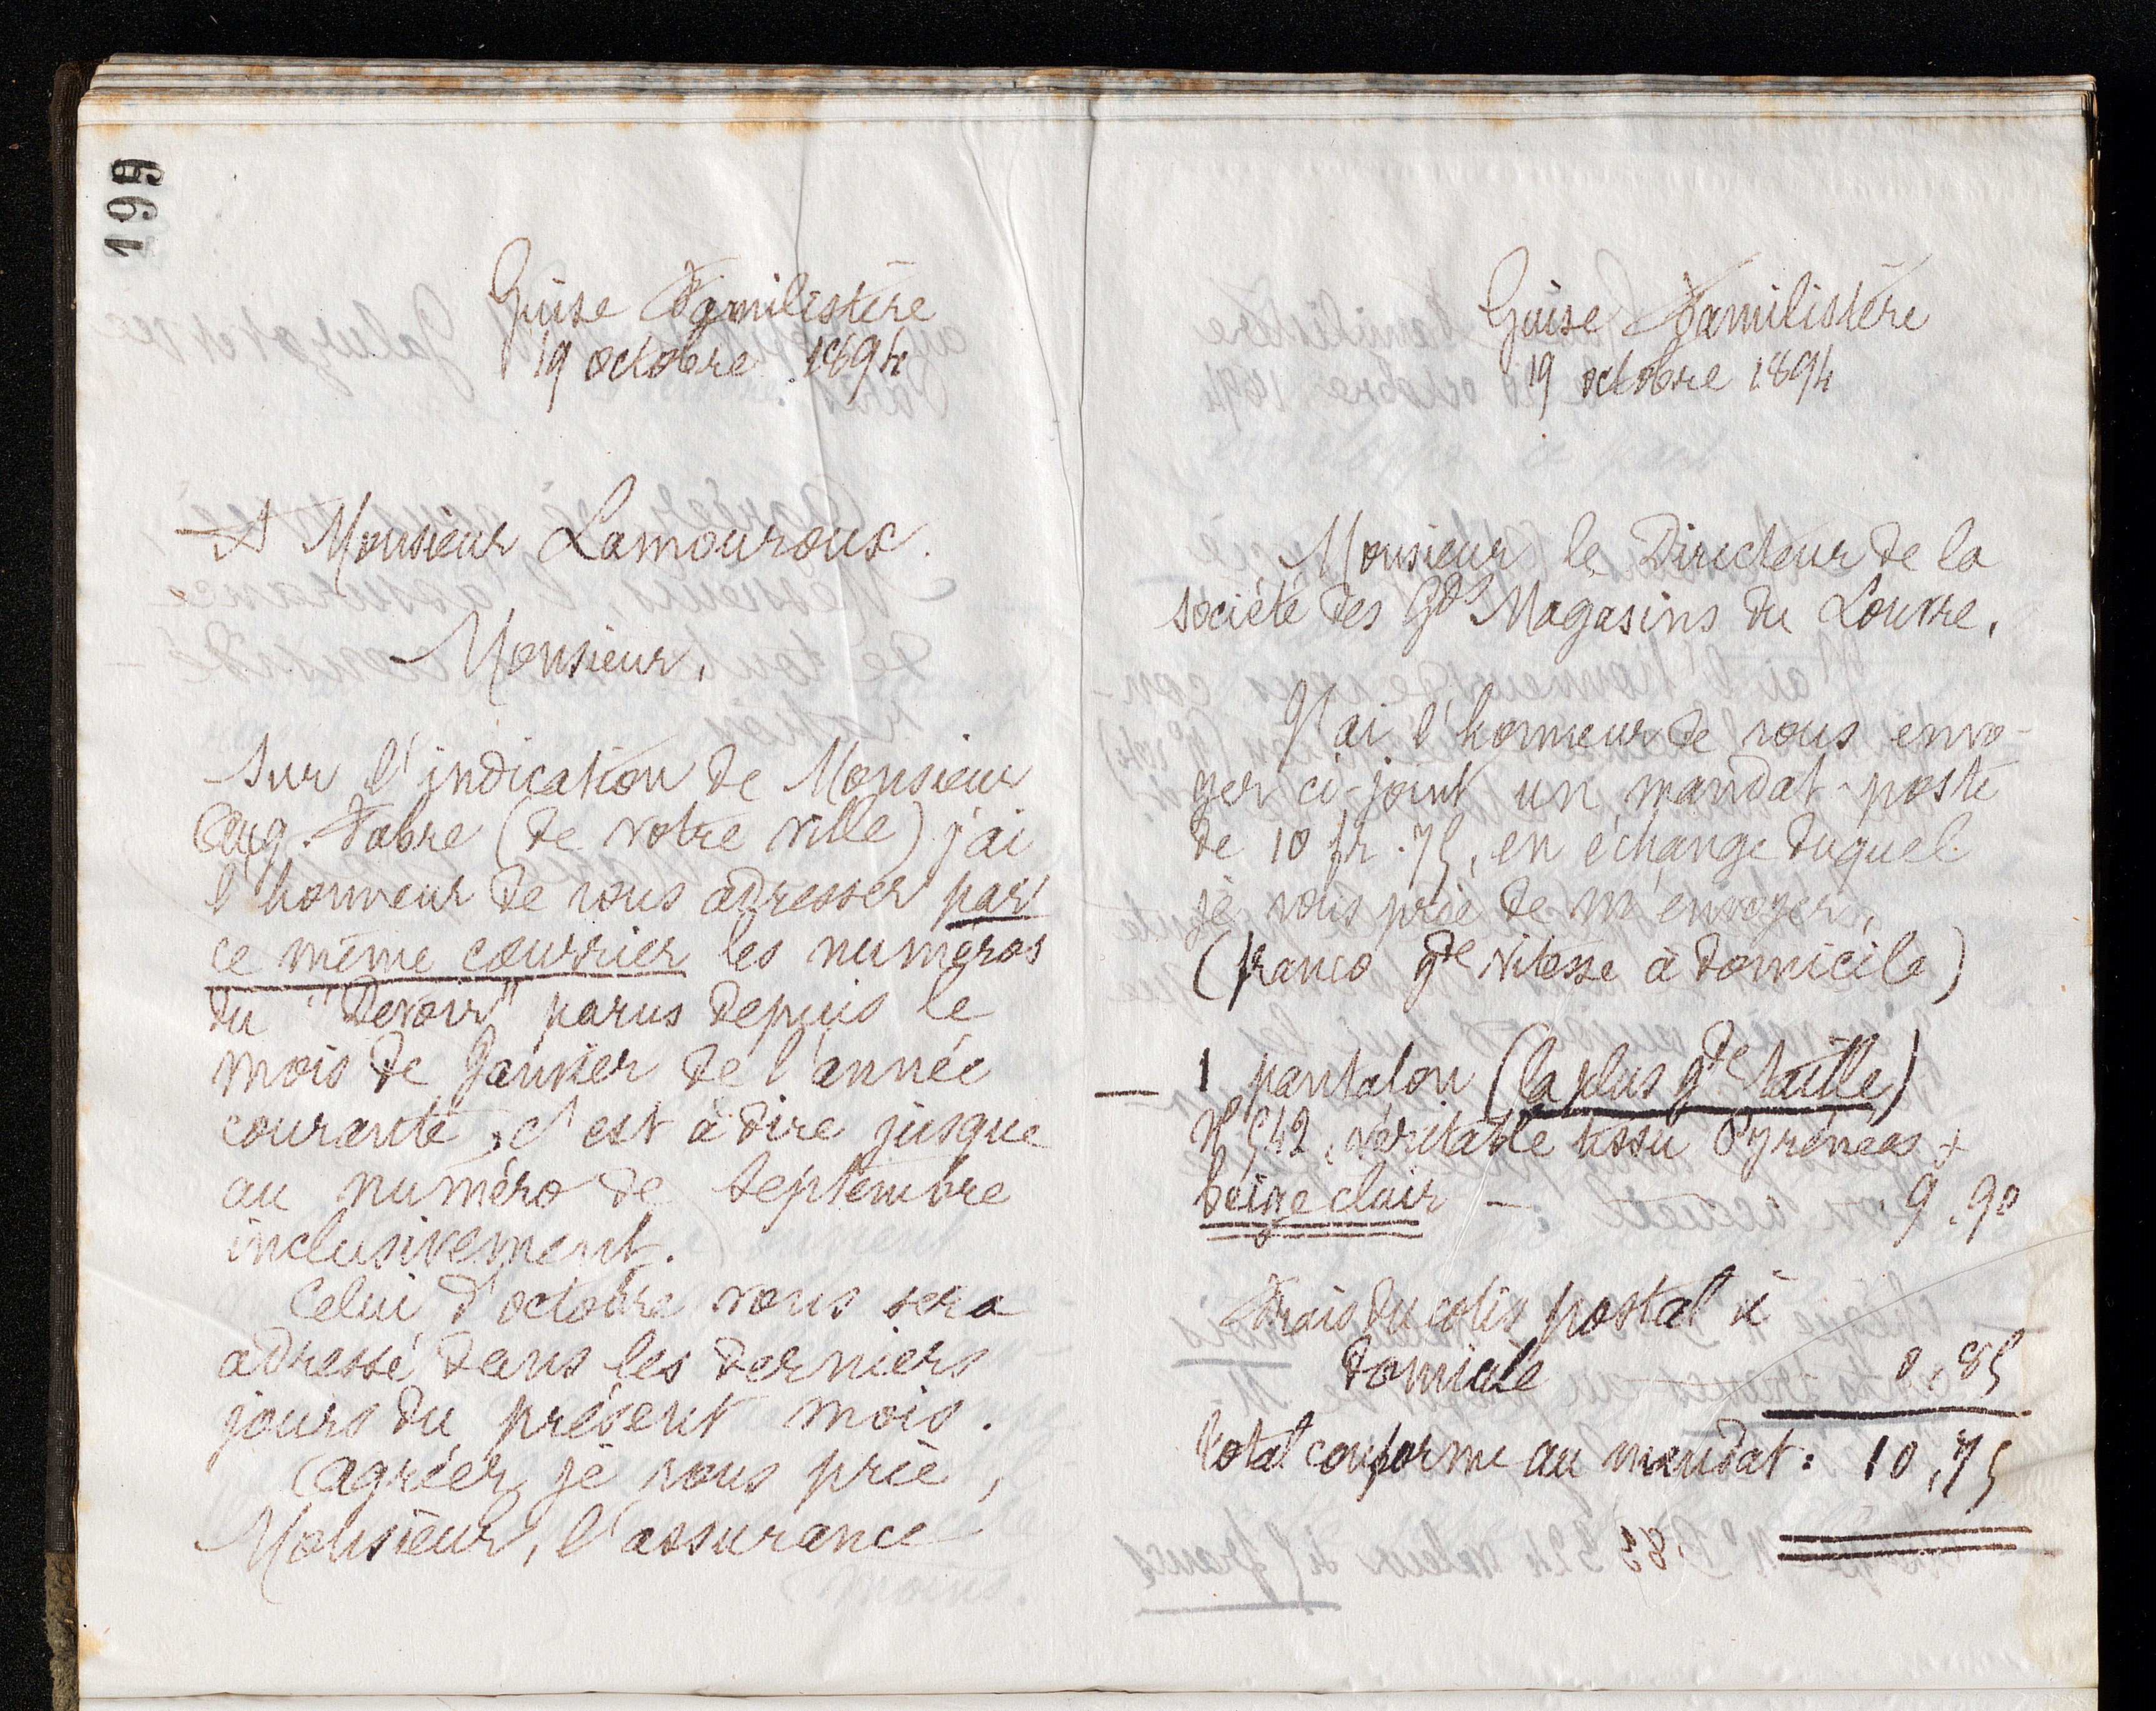 199
Guise Familistère
19 octobre 1894
A Monsieur Lamouroux.
Monsieur,
Sur l'indication de Monsieur
Aug. Fabre (de votre ville) j'ai
l'honneur de vous adresser par
ce même courrier les numéros
du "Devoir" parus depuis le
mois de Janvier de l'année
courante, c'est à dire jusque
au numéro de Septembre
inclusivement.
Celui d'octobre vous sera
adressé dans les derniers
jours du présent mois.
Agréer, je vous prie,
Monsieur, l'assurance
Guise Familistère
19 octobre 1894
Monsieur le Directeur de la
société des Gds Magasins du Louvre.
J'ai l'honneur de vous envo-
yer ci-joint un mandat-poste
de 10 fr. 75, en échange duquel
je vous prie de m'envoyer,
(franco gde vitesse à domicile)
— 1 pantalon (la plus gde taille)
No 542, véritable tissu Pyrénées
beige clair — 9.90
Frais du colis postal à
domicile 0.85
Total conforme au mandat: 10,75